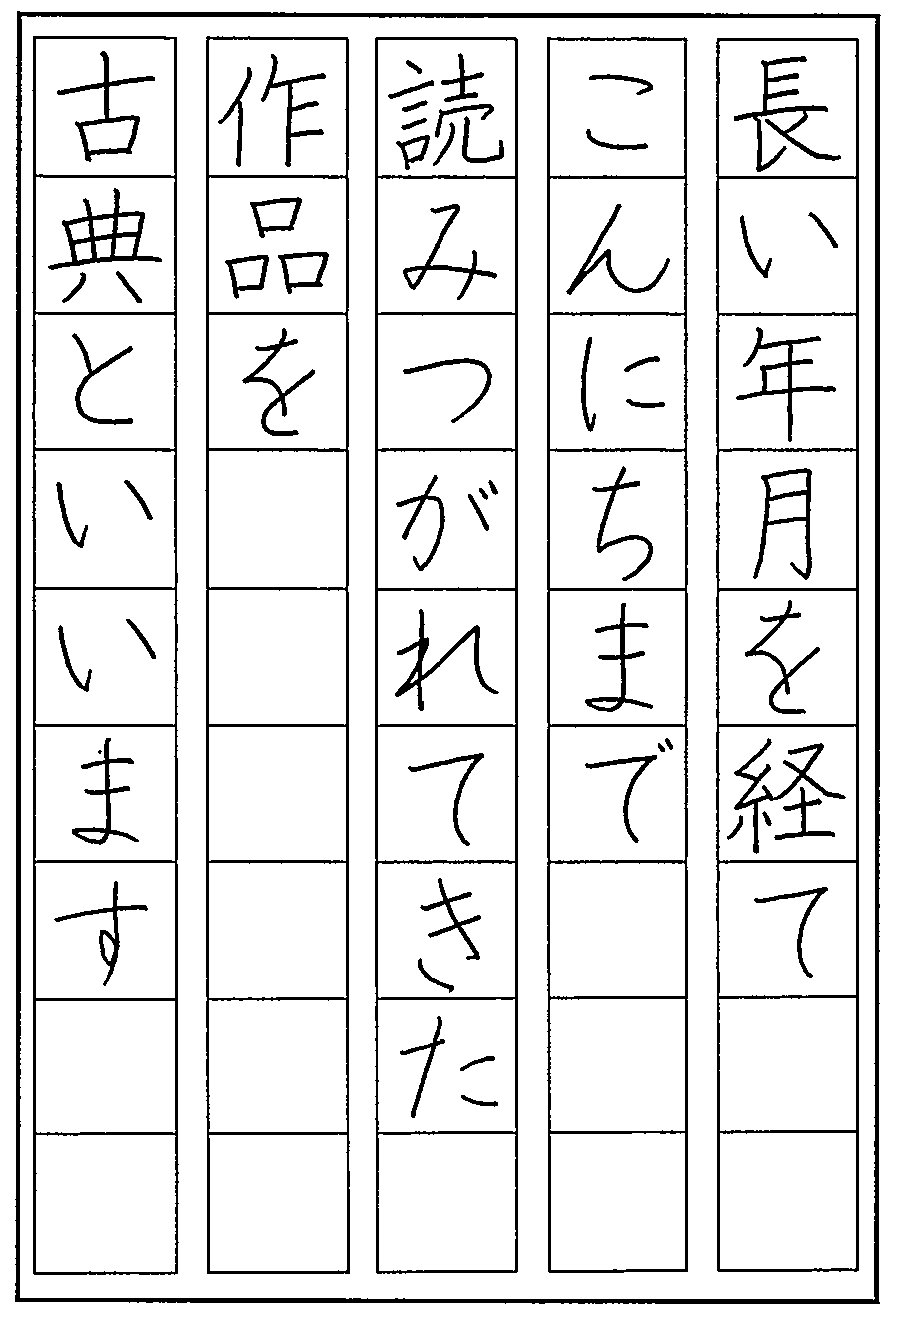 長い年月を経て
こんにちまで
読みつがれてきた
作品を
古典といいます